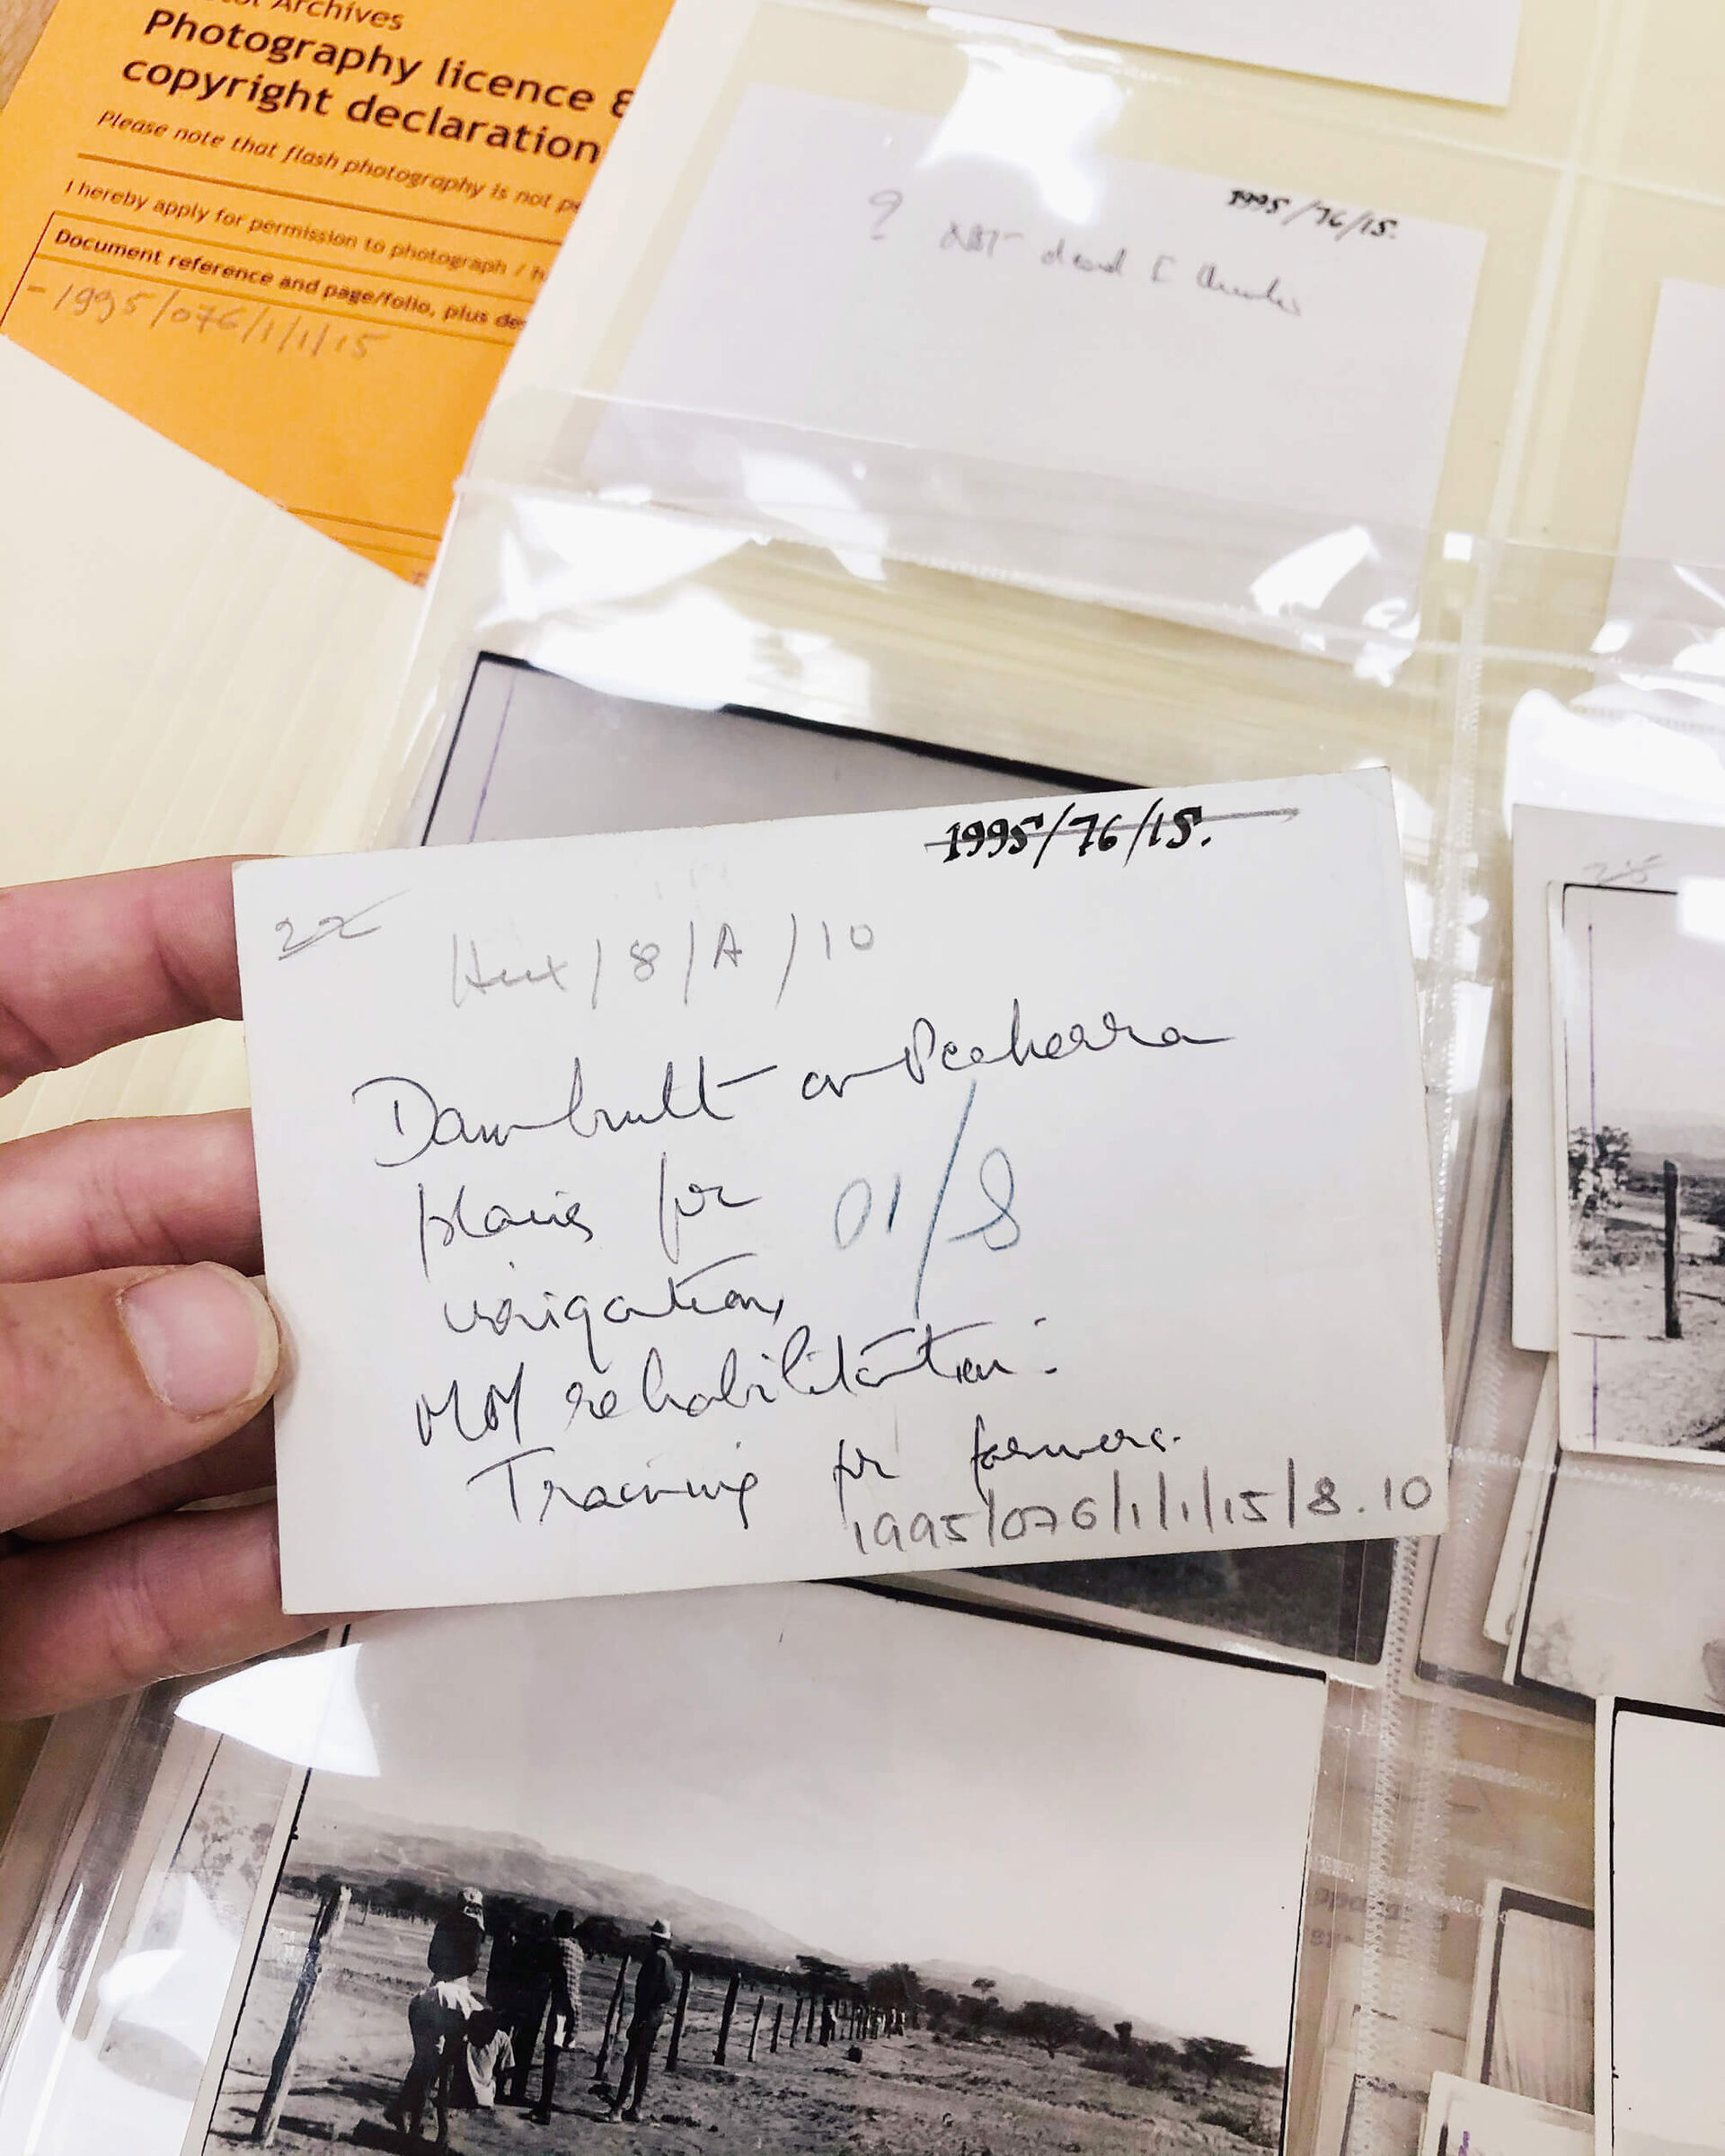 Archives
Photography licence &
copyright declaration
Please note that flash photography is not pe
I hereby apply for permission to photograph / h
Document reference and page/folio, plus de
-1995/076/1/1/15
1995/76/15.
? NOT dead I
1995/76/15.
22
Hux/8/A/10
Dam built on
plains for
01/8
irrigation,
rehabilitation:
Training for farmers.
1995/076/1/1/15/8.10